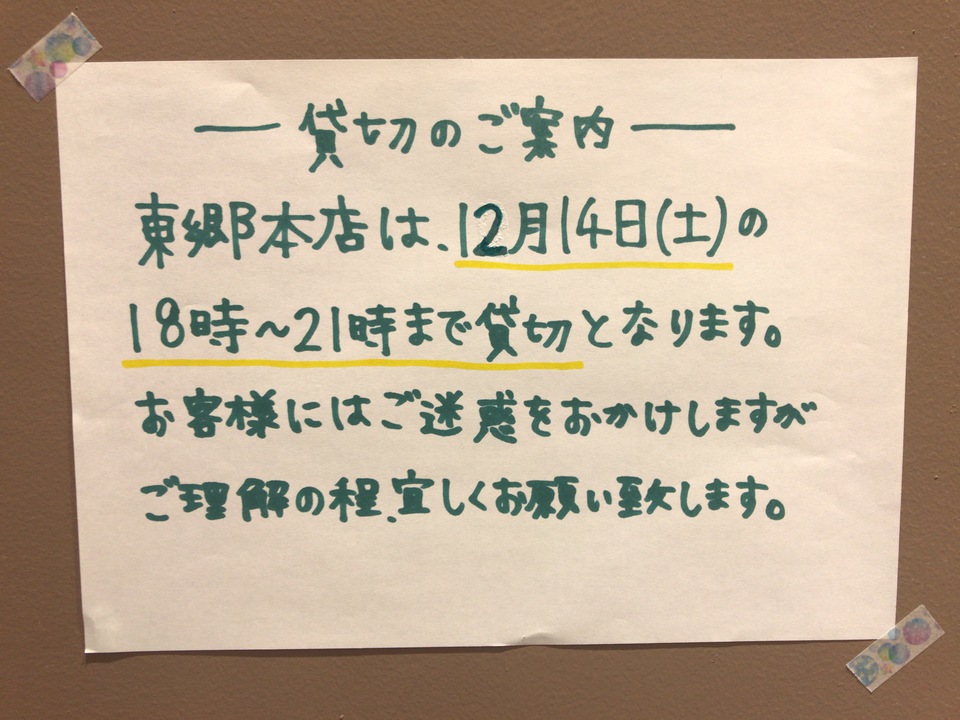 ― 貸切のご案内 ―
東郷本店は、12月14日(土)の
18時~21時まで貸切となります。
お客様にはご迷惑をおかけしますが
ご理解の程、宜しくお願い致します。